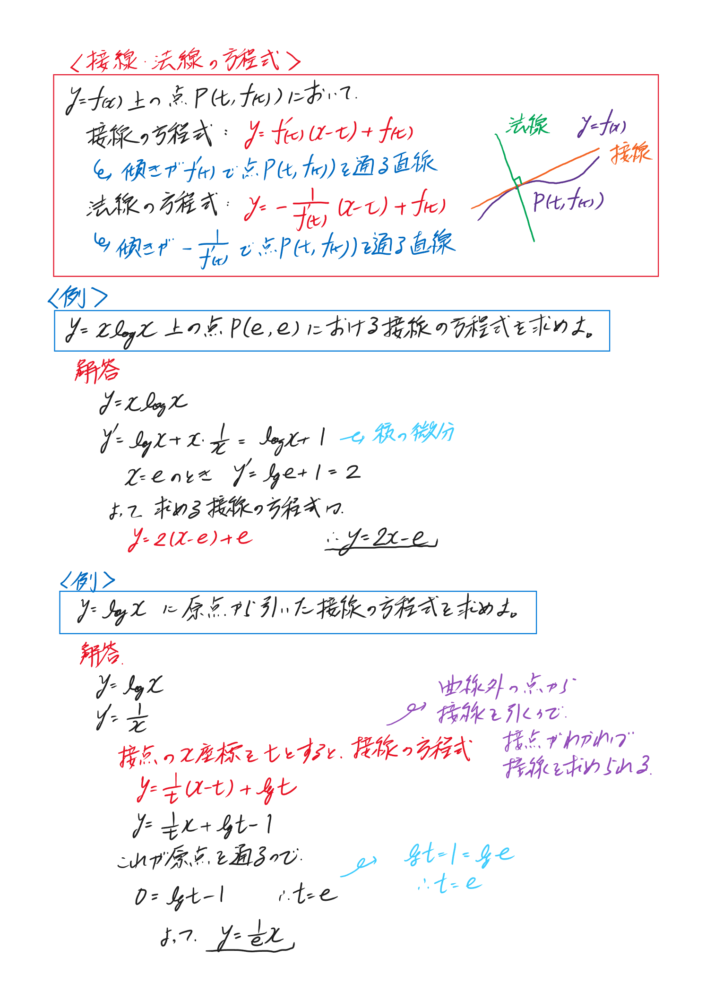 <接線・法線の方程式>
y=f(x)上の点P(t, f(t))において
接線の方程式: y=f'(t)(x-t)+f(t)
↳ 傾きがf'(t)で点P(t, f(t))を通る直線
法線の方程式: y=-1/f'(t) (x-t)+f(t)
↳ 傾きが-1/f'(t)で点P(t, f(t))を通る直線
法線
y=f(x)
接線
P(t, f(t))
<例>
y=xlogx 上の点P(e, e)における接線の方程式を求めよ。
解答
y=xlogx
y'=logx+x・1/x = logx+1 ↩ 積の微分
x=eのとき y'=loge+1=2
よって 求める接線の方程式は
y=2(x-e)+e ∴y=2x-e
<例>
y=logx に原点から引いた接線の方程式を求めよ。
解答.
y=logx
y'=1/x
曲線外の点から
接線を引くので
接点がわかれば
接線を求められる.
接点のx座標をtとすると、接線の方程式
y=1/t(x-t)+logt
y=1/t x+logt-1
これが原点を通るので
0=logt-1 ∴t=e
logt=1=loge
∴t=e
よって y=1/e x